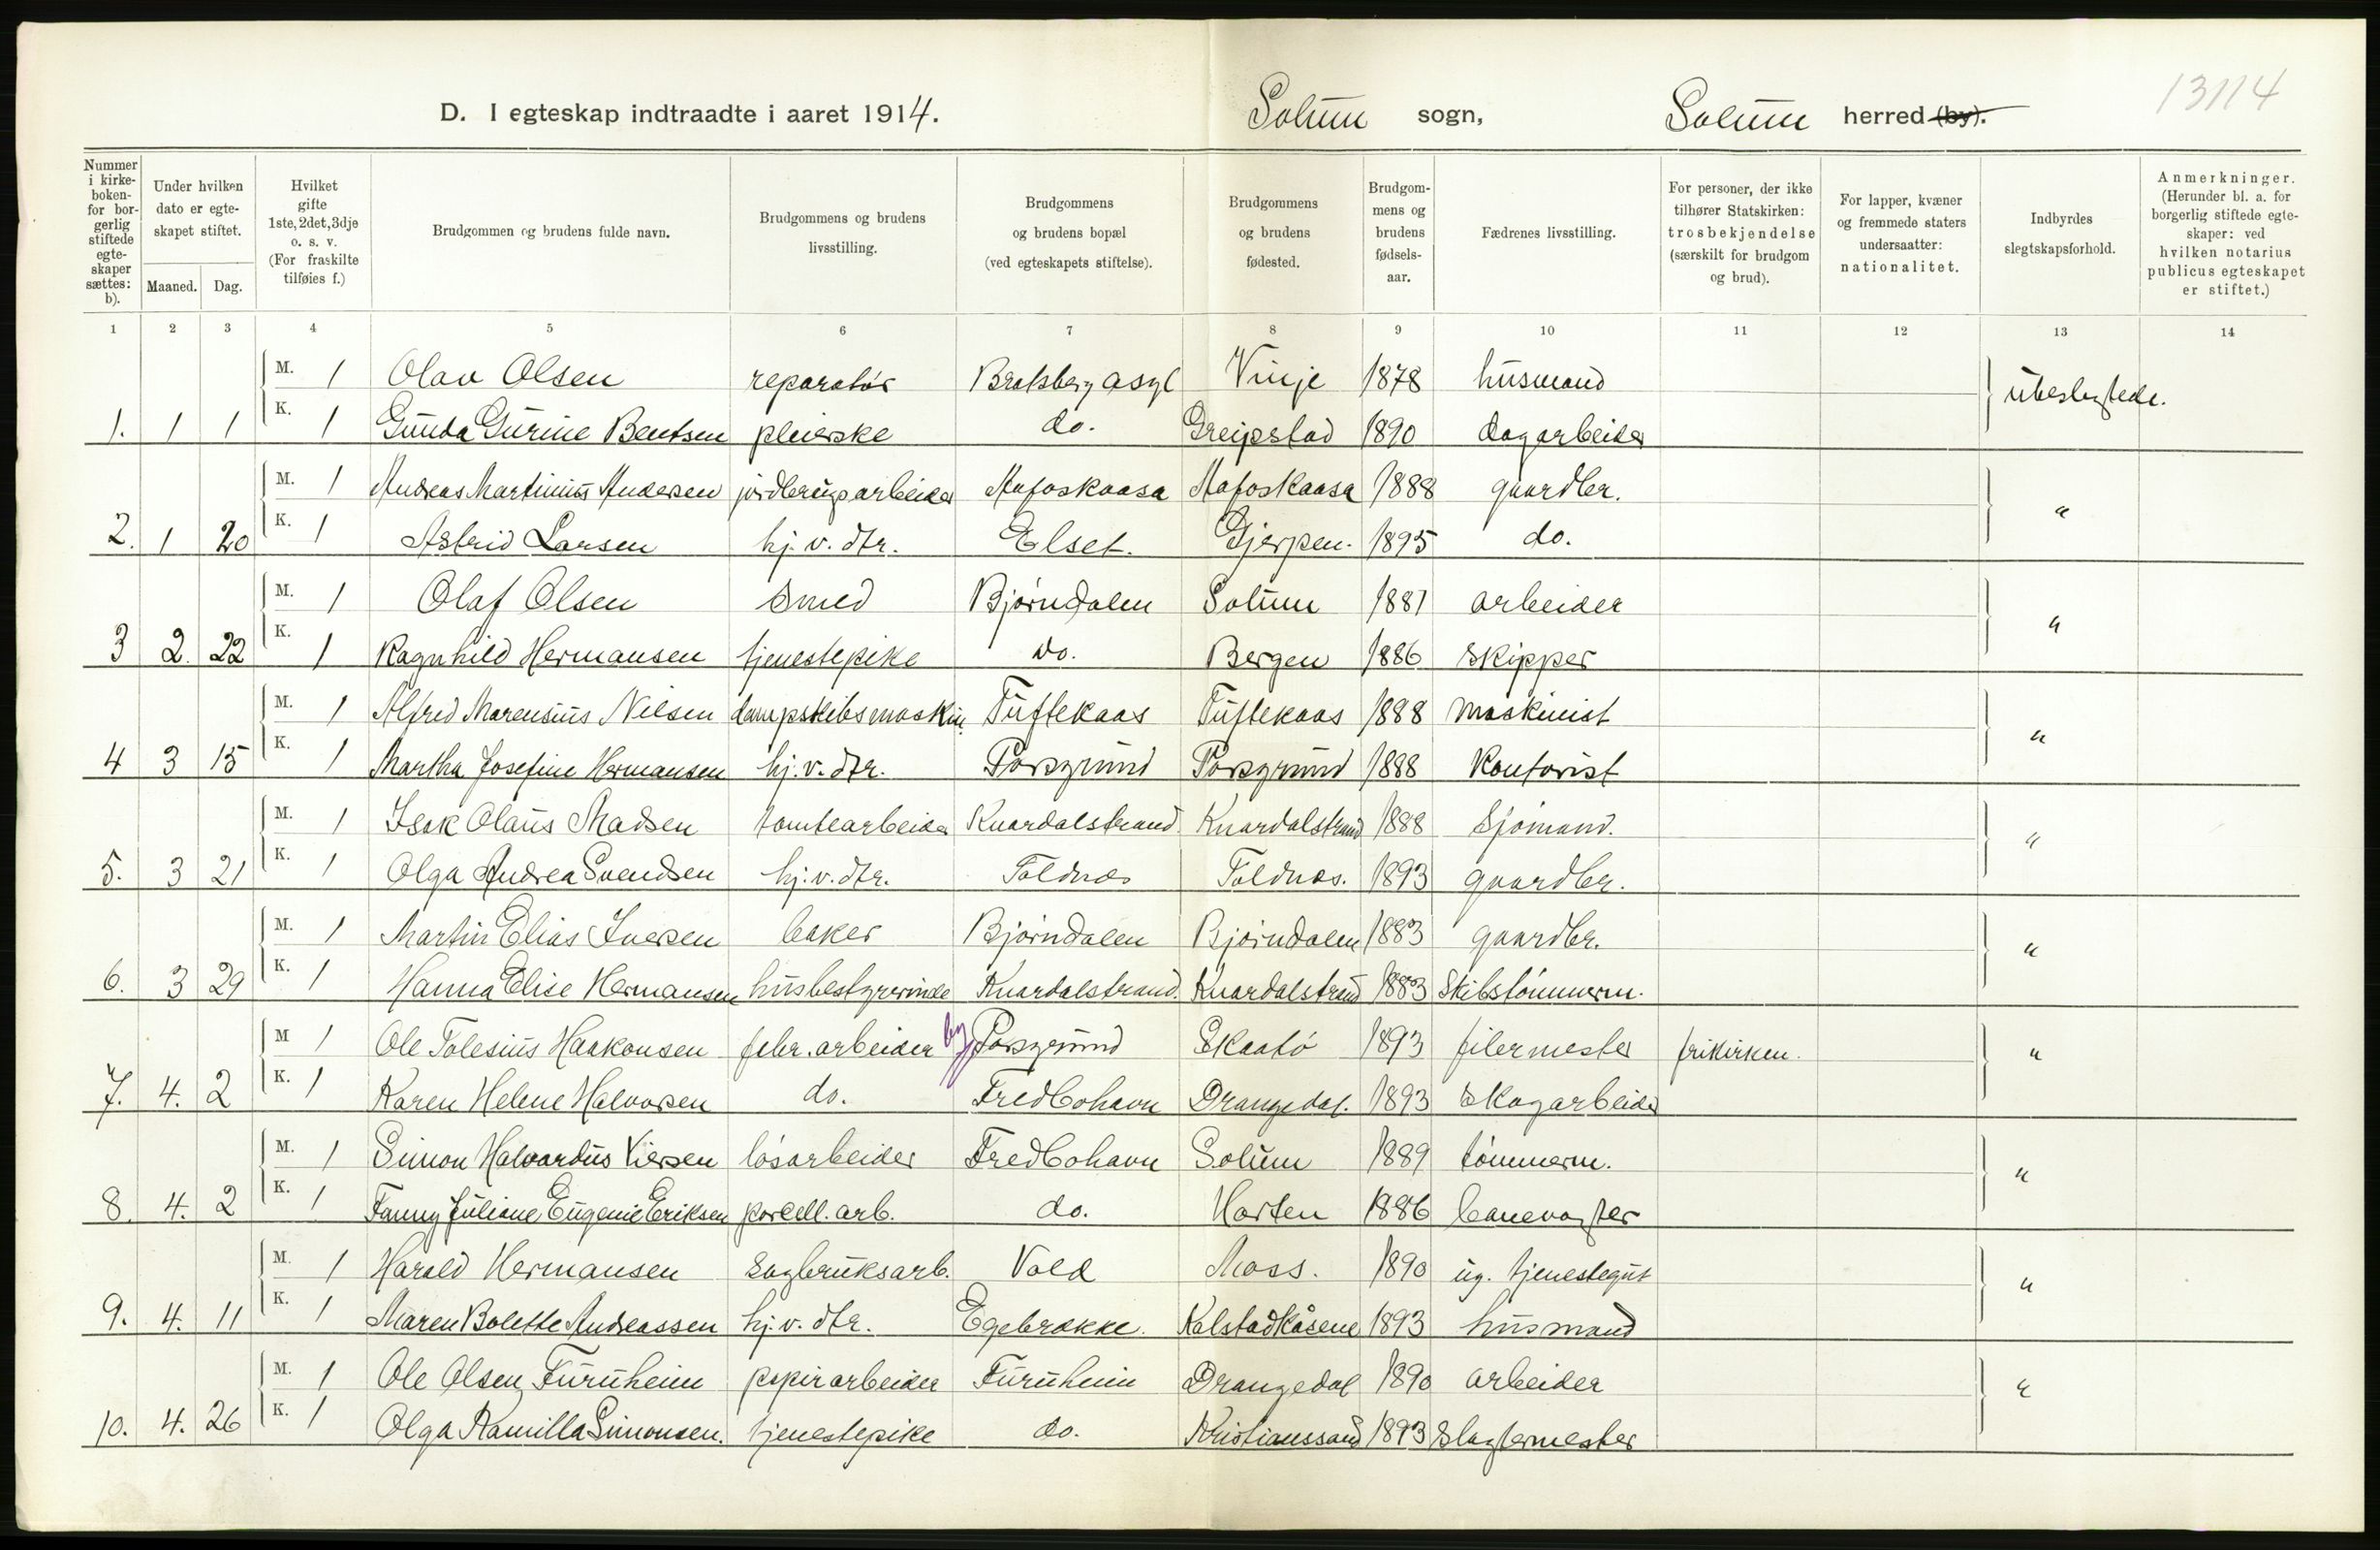 13114
D. I egteskap indtraadte i aaret 1914. Solum sogn, Solum herred (by).
Nummer i kirke-boken- for bor-gerlig stiftede egte-skaper sættes: b). | Under hvilken dato er egte-skapet stiftet. Maaned. Dag. | Hvilket gifte 1ste, 2det, 3dje o. s. v. (For fraskilte tilføies f.) | Brudgommen og brudens fulde navn. | Brudgommens og brudens livsstilling. | Brudgommens og brudens bopæl (ved egteskapets stiftelse). | Brudgommens og brudens fødested. | Brudgom-mens og brudens fødsels-aar. | Fædrenes livsstilling. | For personer, der ikke tilhører Statskirken: trosbekjendelse (særskilt for brudgom og brud). | For lapper, kvæner og fremmede staters undersaatter: nationalitet. | Indbyrdes slegtskapsforhold. | Anmerkninger. (Herunder bl. a. for borgerlig stiftede egte-skaper: ved hvilken notarius publicus egteskapet er stiftet.)
1 2 3 4 5 6 7 8 9 10 11 12 13 14
M. 1 Olav Olsen reparatør Bratsberg asyl Vinje 1878 husmand ubeslegtede.
1. 1 1 K. 1 Gunda Gurine Bentsen pleierske do. Greipstad 1890 dagarbeider
M. 1 Andreas Martinius Andersen jordbrugsarbeider Aafoskaasa Aafoskaasa 1888 gaardbr. "
2. 1 20 K. 1 Astrid Larsen hj. v. dtr. Elset. Gjerpen. 1895 do.
M. 1 Olaf Olsen smed Bjørndalen Solum 1881 arbeider "
3 2. 22 K. 1 Ragnhild Hermansen tjenestepike do. Bergen 1886 skipper
M. 1 Alfred Marensius Nilsen dampskibsmaskin. Tuftekaas Tuftekaas 1888 maskinist "
4 3 15 K. 1 Martha Josefine Hermansen hj. v. dtr. Porsgrund Porsgrund 1888 kontorist
M. 1 Isak Olaus Madsen tomtearbeider Knardalstrand Knardalstrand 1888 sjømand. "
5. 3 21 K. 1 Olga Andrea Svendsen hj. v. dtr. Toldnæs Toldnæs. 1893 gaardbr.
M. 1 Martin Elias Iversen baker Bjørndalen Bjørndalen 1883 gaardbr. "
6. 3 29 K. 1 Hanna Elise Hermansen husbestyrerinde Knardalstrand. Knardalstrand 1883 Skibstømmerm.
M 1 Ole Tolesius Haakonsen fabr. arbeider by Porsgrund Skaatø 1893 filermester frikirken. "
7. 4. 2 K. 1 Karen Helene Halvorsen do. Fredbohavn Drangedal. 1893 skogarbeider
M. 1 Simon Halvardus Viersen løsarbeider Fredbohavn Solum 1889 tømmerm. "
8. 4. 2 K. 1 Fanny Juliane Eugenie Eriksen porcell. arb. do. Horten 1886 banevogter
M. 1 Harald Hermansen sagbruksarb. Vold Moss. 1890 ug. tjenestegut "
9. 4. 11 K. 1 Maren Bolette Andreassen hj. v. dtr. Egebrække. Kalstadkåsene 1893 husmand
M. 1 Ole Olsen Furuheim papirarbeider Furuheim Drangedal 1890 arbeider "
10. 4. 26 K. 1 Olga Kamilla Simonsen. tjenestepike do. Kristianssand 1893 slagtermester